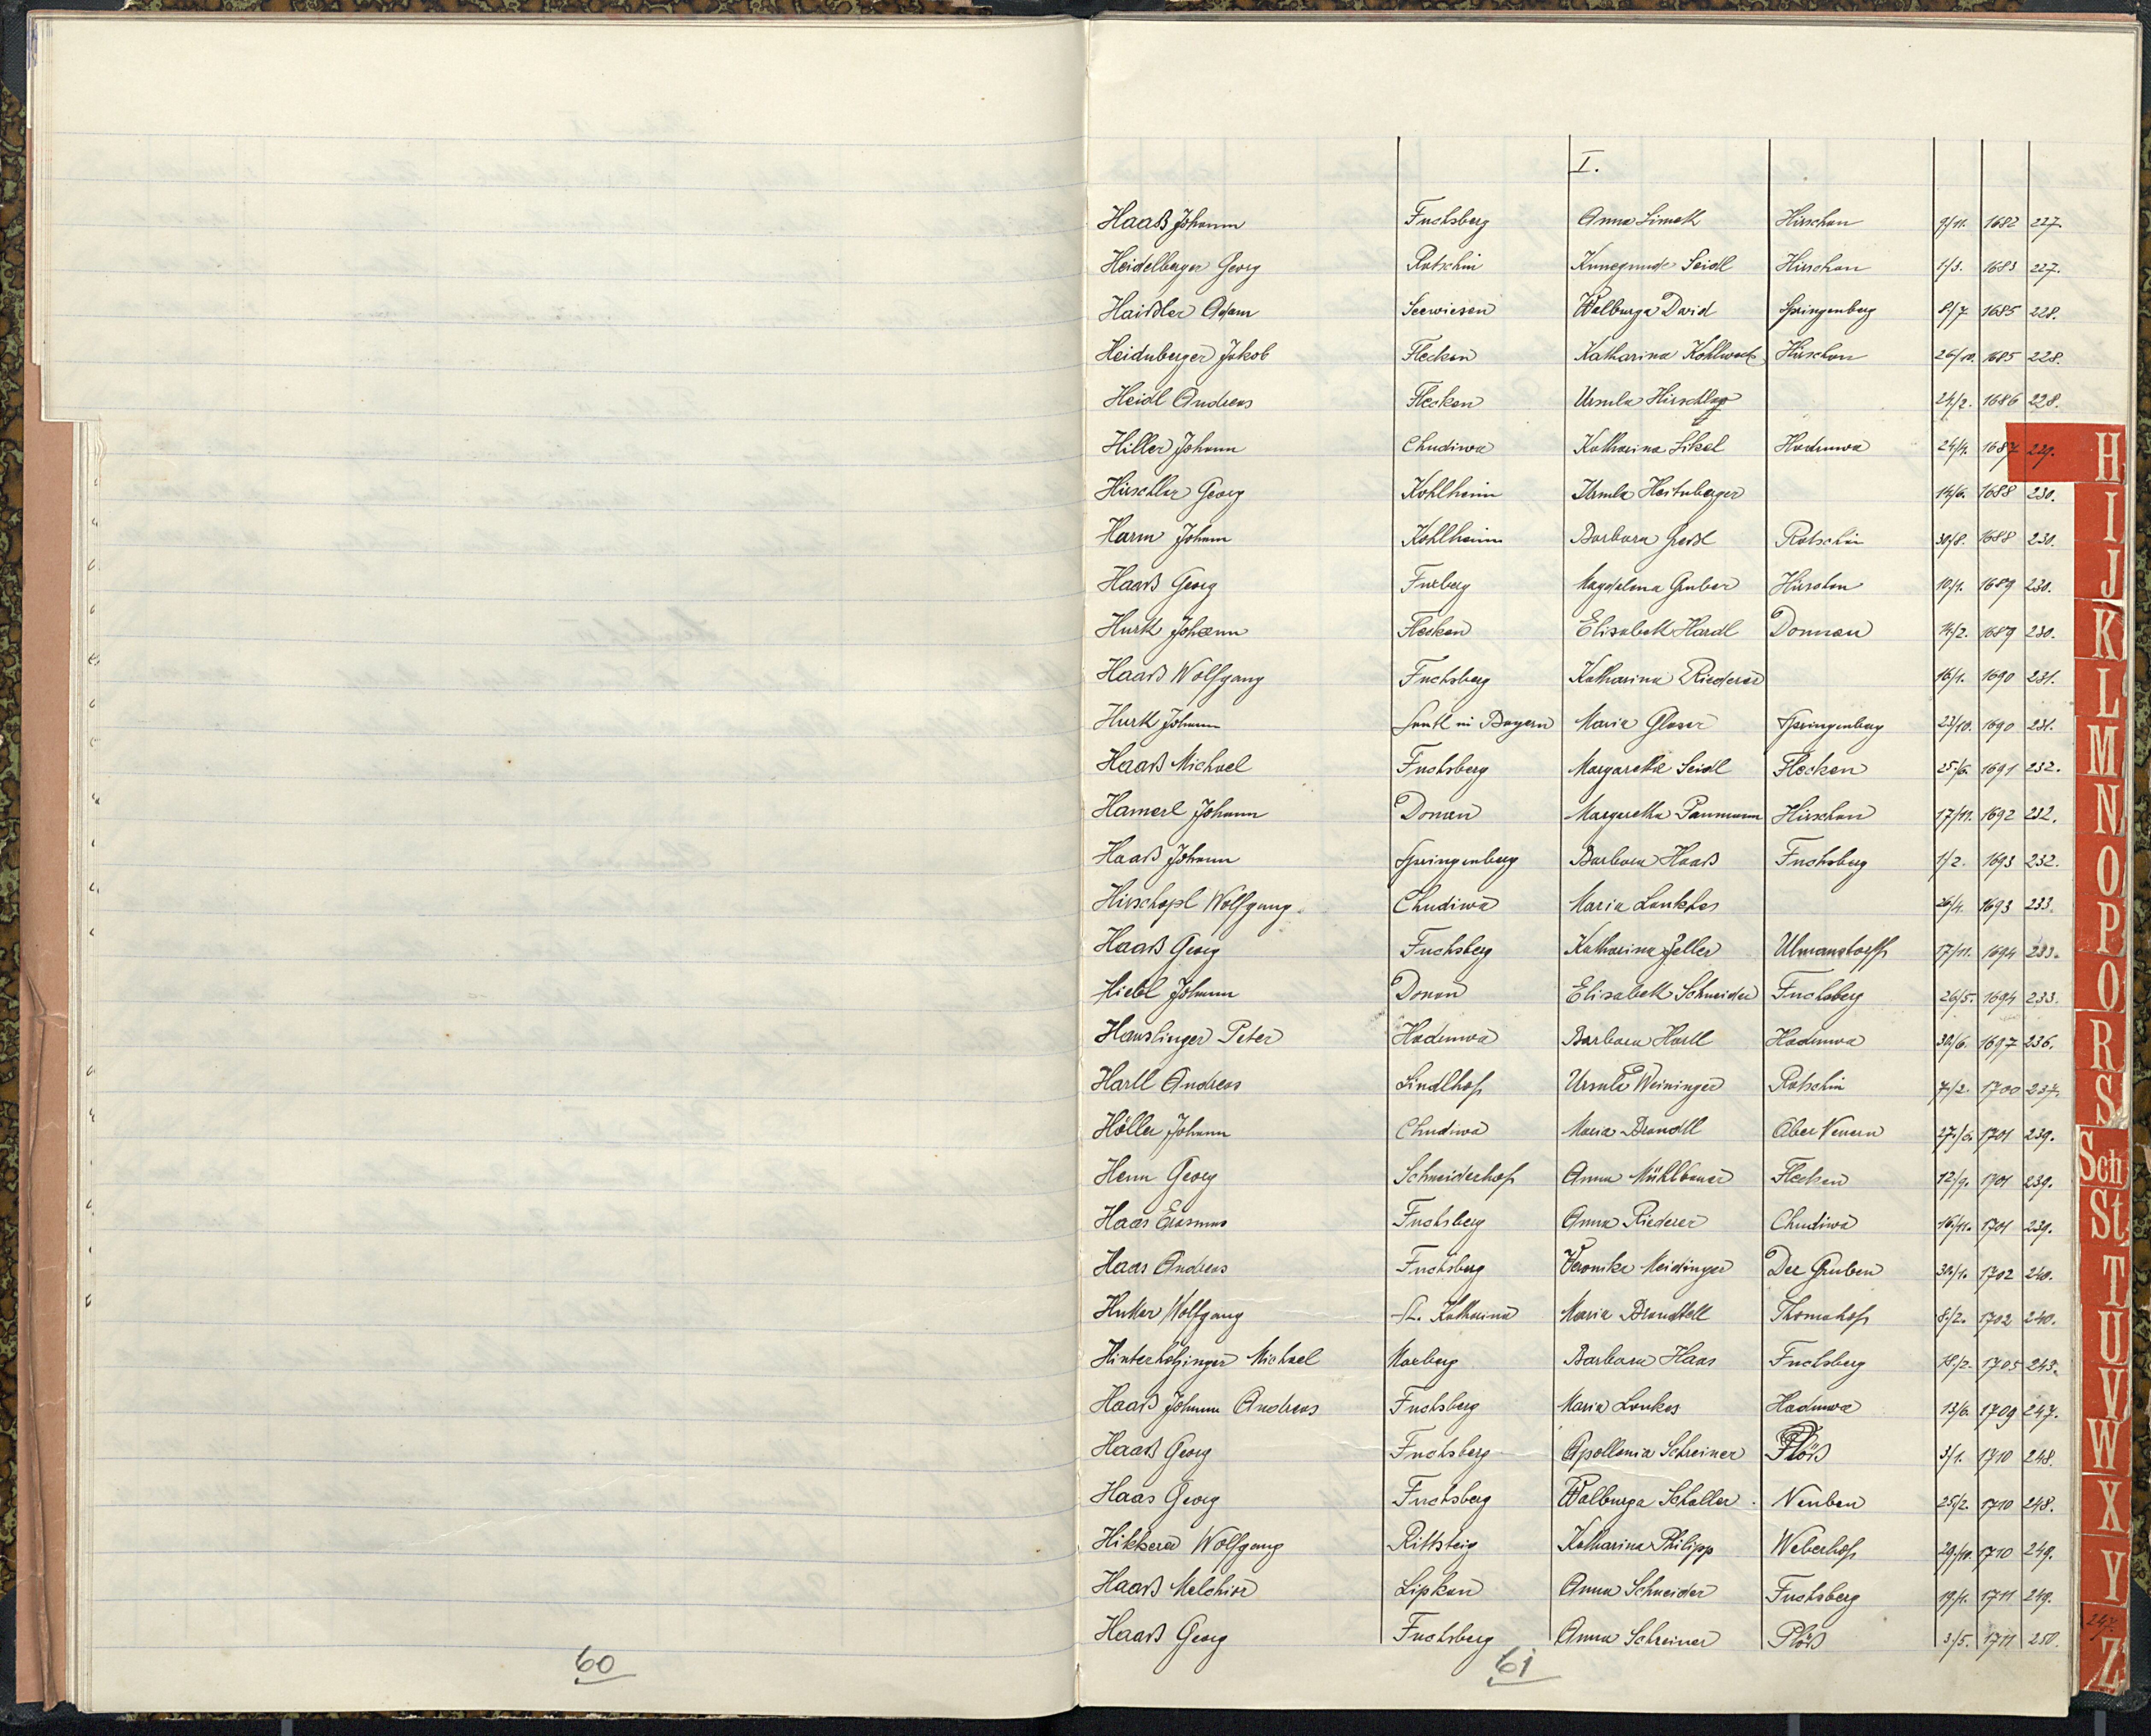 I.
Haaß Johann Fuchsberg Anna Simeth Hirschau 9/11. 1682 227.
Heidelberger Georg Rotschin Kunegunde Seidl Hirschau 1/3. 1683 227.
Haißler Adam Seewiesen Walburga David Springenberg 8/7 1685 228.
Heidnberger Jakob Flecken Katharina Hirschau 26/10. 1685 228.
Heidl Andreas Flecken Ursula 24/2. 1686 228.
Hiller Johann Chudiwa Katharina Hadruwa 24/4. 1687 229.
Hirschler Georg Kohlheim Ursula 14/6. 1688 230.
Harm Johann Kohlheim Barbara Rotschin 30/8. 1688 230.
Haaß Georg Fuxberg Magdalena Gruber Hirschau 10/1. 1689 230.
Hurth Johann Flecken Elisabeth Hardl Donnau 14/2. 1689 230.
Haaß Wolfgang Fuchsberg Katharina Riederer 16/1. 1690 231.
Hurth Johann in Bayern Maria Glaser Springenberg 23/10. 1690 231.
Haaß Michael Fuchsberg Margaretha Seidl Flecken 25/6. 1691 232.
Hamerl Johann Donau Margaretha Paumann Hirschau 17/11. 1692 232.
Haaß Johann Springenberg Barbara Haaß Fuchsberg 1/2. 1693 232.
Hirschopl Wolfgang Chudiwa Maria 26/4. 1693 233.
Haaß Georg Fuchsberg Katharina Zeller Ulmanstorff 17/11. 1694 233.
Hiebl Johann Donau Elisabeth Schneider Fuchsberg 26/5. 1694 233.
Hauslinger Peter Hadruwa Barbara Hartl Hadruwa 30/6. 1697 236.
Hartl Andreas Lindlhof Ursula Weininger Rotschin 7/2. 1700 237.
Höller Johann Chudiwa Maria Brandtl Ober Neuern 27/6. 1701 239.
Henn Georg Schneiderhof Anna Mühlbauer Flecken 12/9. 1701 239.
Haas Erasmus Fuchsberg Anna Riederer Chudiwa 16/11. 1701 239.
Haas Andreas Fuchsberg Veronika Meidinger Der Gruben 30/1. 1702 240.
Hutter Wolfgang St. Katharina Maria Brandtell Thomahof 8/2. 1702 240.
Hinterholzinger Michael Maxberg Barbara Haas Fuchsberg 18/2. 1705 243.
Haaß Johann Andreas Fuchsberg Maria Loukes Hadruwa 13/6. 1709 247.
Haaß Georg Fuchsberg Apollonia Schreiner Plöß 3/1. 1710 248.
Haas Georg Fuchsberg Walburga Schaller Neuben 25/2. 1710 248.
Hikkerer Wolfgang Rittsteig Katharina Philipp Weberhof 29/10. 1710 249.
Haaß Melchior Lipkau Anna Schneider Fuchsberg 19/1. 1711 249.
Haaß Georg Fuchsberg Anna Schreiner Plöß 3/5. 1711 250.
60
61
H
I
J
K
L
M
N
O
P
Q
R
S
Sch
St
T
U
V
W
X
Y
247.
Z